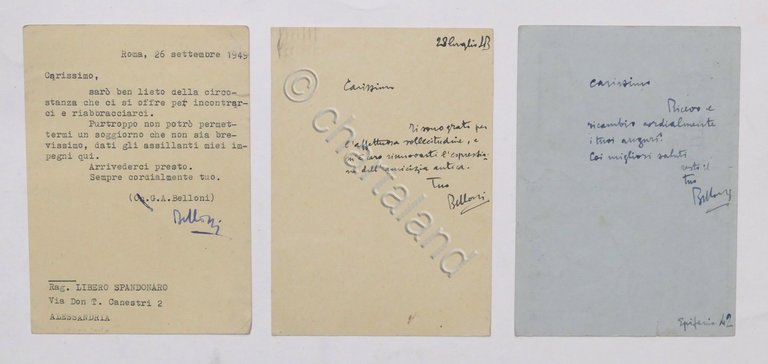 Roma, 26 settembre 1949
Carissimo,
sarò ben lieto della circo=
stanza che ci si offre per incontrar=
ci e riabbracciarci.
Purtroppo non potrò permet=
termi un soggiorno che non sia bre=
vissimo, dati gli assillanti miei im=
pegni qui.
Arrivederci presto.
Sempre cordialmente tuo.
(On.G.A.Belloni)
Belloni
Rag. LIBERO SPANDONARO
Via Don T. Canestri 2
ALESSANDRIA
28 luglio 43
Carissimo
ti sono grato per
l'affettuosa sollecitudine, e
rinnovarti l'espressio
ne dell'amicizia antica.
Tuo
Belloni
Carissimo
Ricevo e
ricambio cordialmente
i tuoi auguri.
Coi migliori saluti
tuo
Belloni
Epifania 42
© chartaland